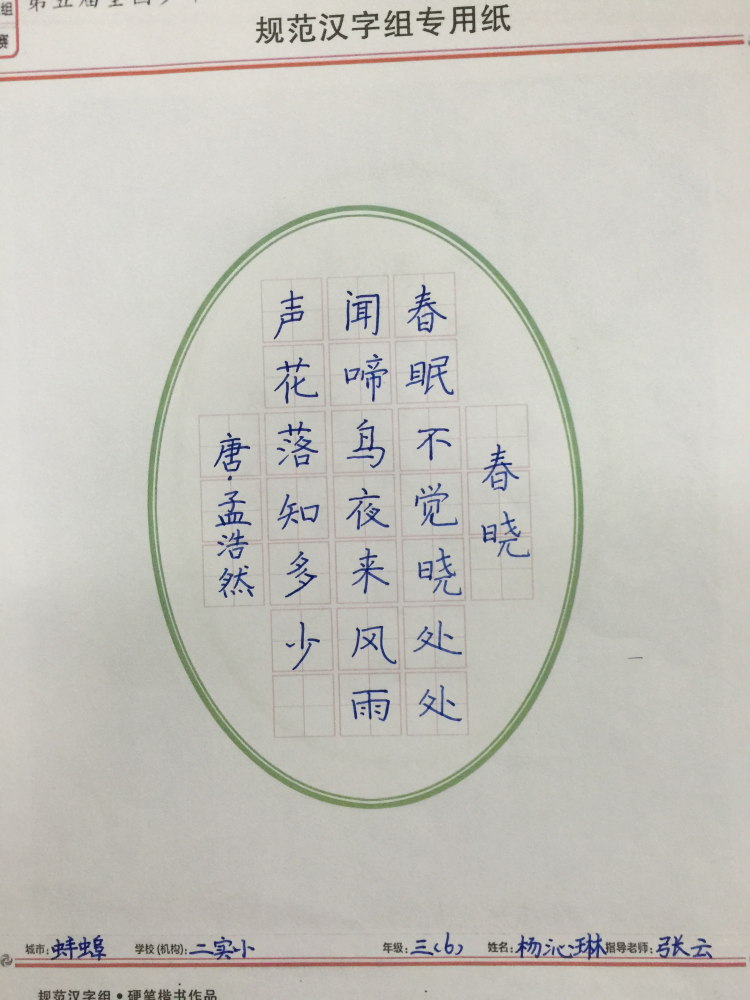 组
赛
规范汉字组专用纸
春晓
春眠不觉晓处处
闻啼鸟夜来风雨
声花落知多少
唐·孟浩然
城市:蚌埠 学校(机构):二实小 年级:三(6) 姓名:杨沁琳 指导老师:张云
规范汉字组•硬笔楷书作品